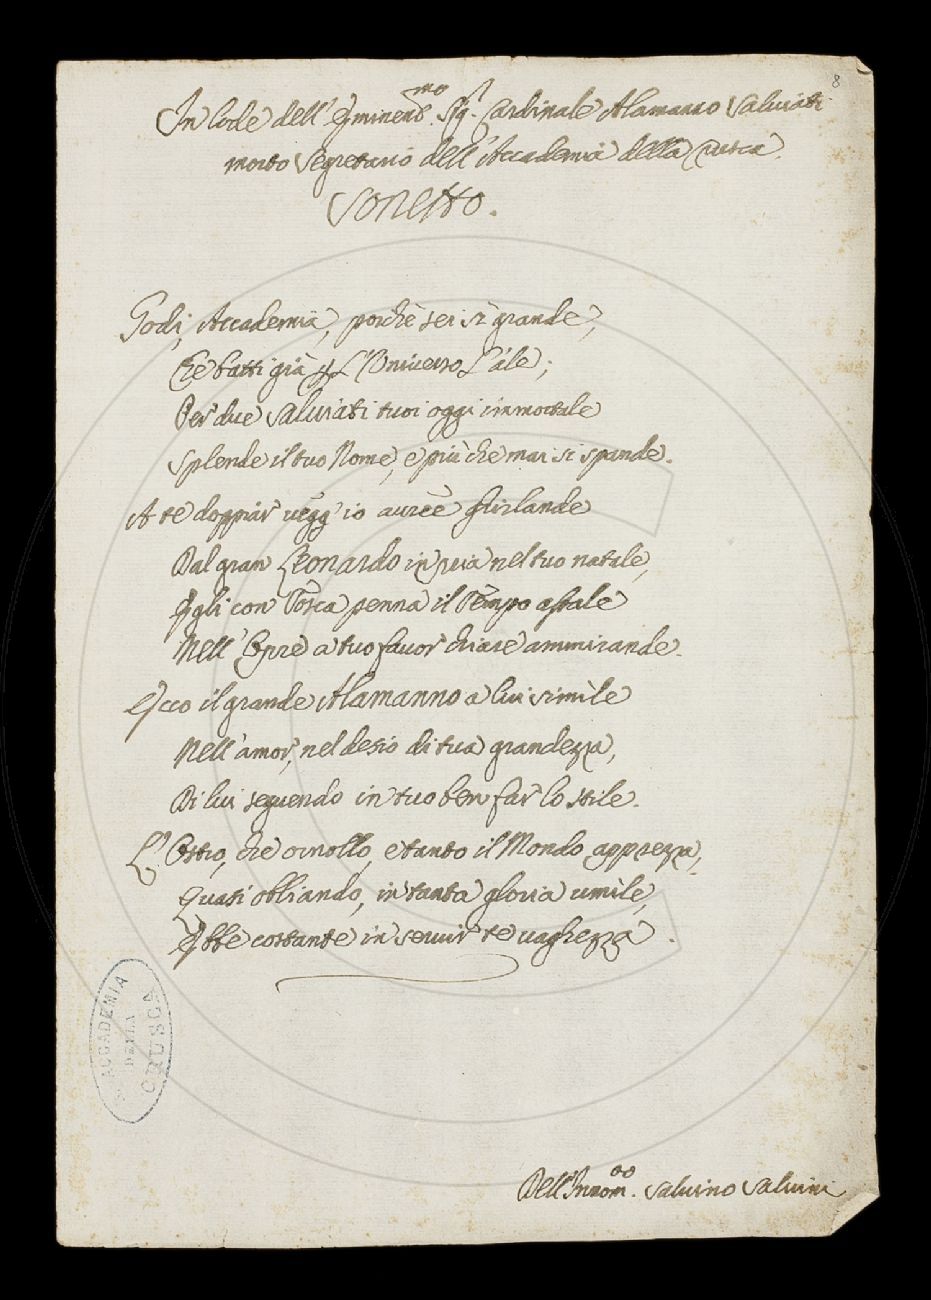 8
In lode dell' Eminen.mo Sig.r Cardinale Alamanno Salviati
morto Segretario dell'Accademia della Crusca.
Sonetto.
Godi, Accademia, poichè sei sì grande,
Che batti già per L'Universo L'ale;
Per due Salviati tuoi oggi immortale
Splende il tuo Nome, e più che mai si spande.
A te doppiar vegg' io auree Ghirlande
Dal gran Leonardo in pria nel tuo natale,
Egli con Tosca penna il Tempo assale
Nell' Opre a tuo favor chiare ammirande.
Ecco il grande Alamanno a lui simile
Nell' amor, nel desio di tua grandezza,
Di lui seguendo in tuo ben far lo stile.
L'Ostro, che ornollo, e tanto il Mondo apprezza,
Quasi obliando, in tanta gloria umile,
Ebbe costante in servir te vaghezza.
ACCADEMIA
DELLA
CRUSCA
Dell'Innom.to Salvino Salvini